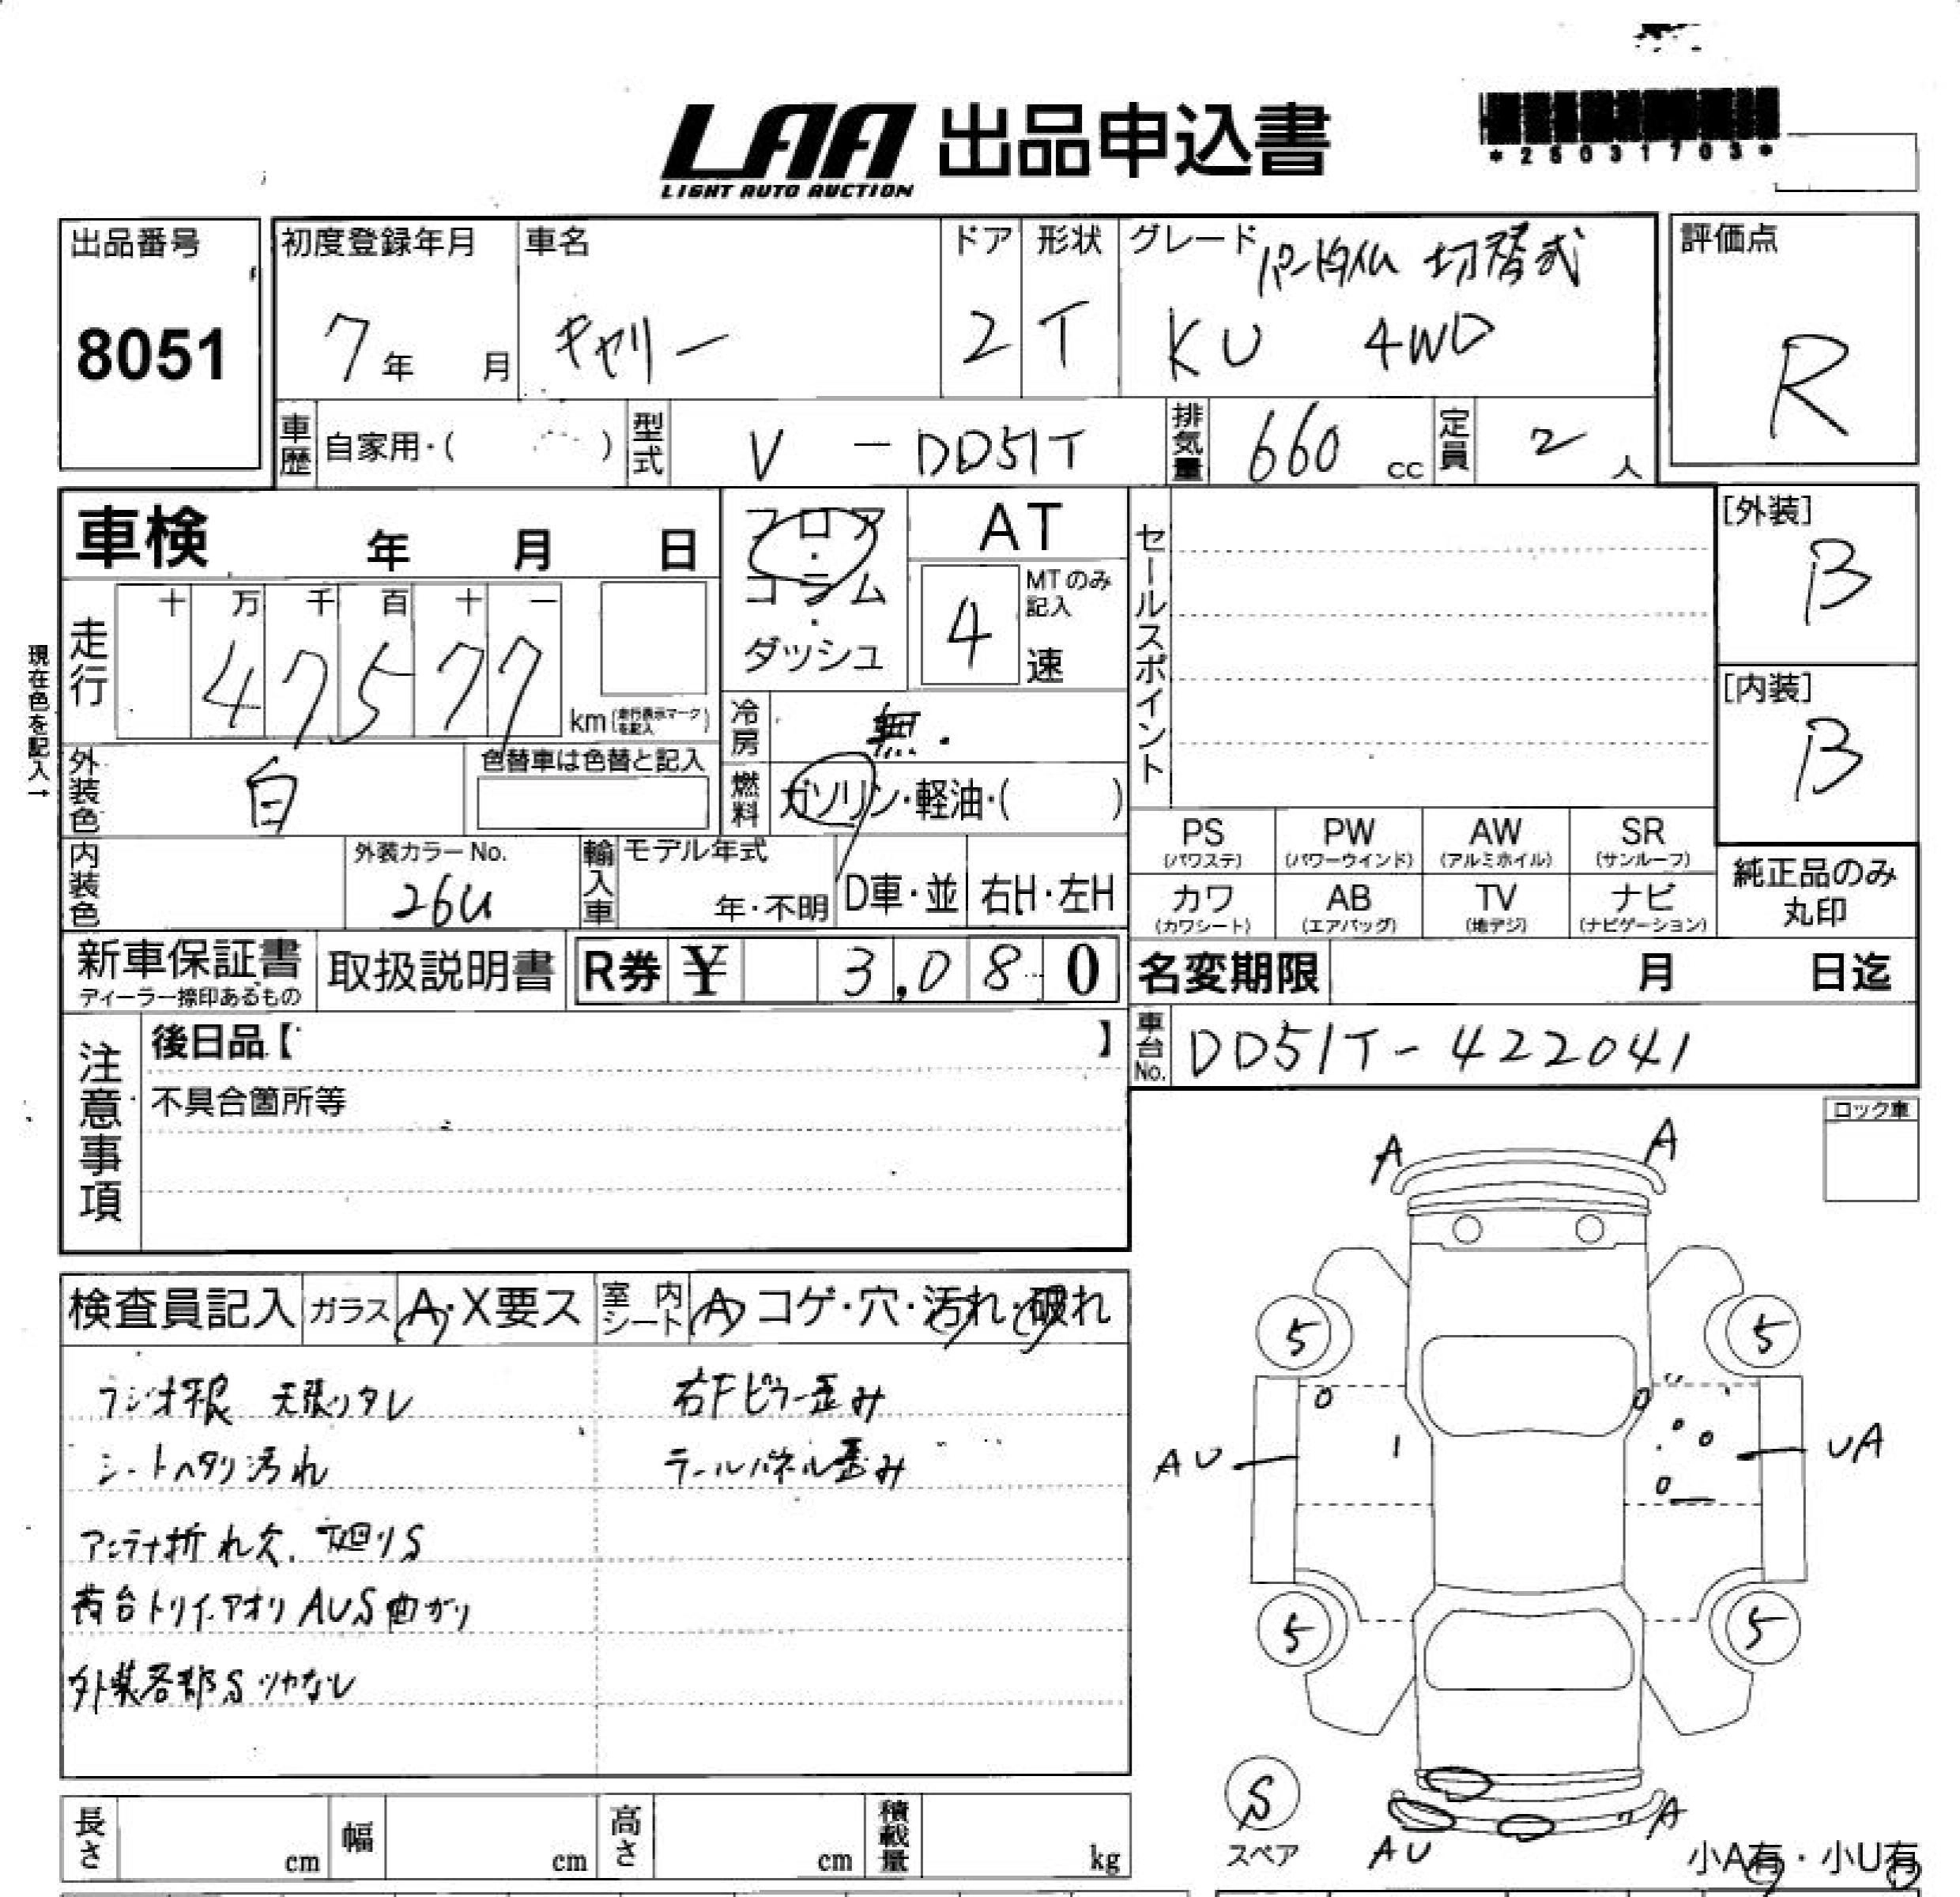 LAA 出品申込書
LIGHT AUTO AUCTION
*25031703*
出品番号
8051
初度登録年月
7年 月
車名
キャリー
ドア
2
形状
T
グレード
パートタイム 切替式
KU 4WD
評価点
R
車歴 自家用・( )
型式 V - DD51T
排気量 660 cc
定員 2 人
車検 年 月 日
フロア・コラム・ダッシュ
AT
4
MTのみ記入
速
セールスポイント
[外装]
B
[内装]
B
現在色を記入→
走行
十 万 千 百 十 一
4 7 5 7 7
km (走行表示マークを記入)
冷房 無.
外装色 白
色替車は色替と記入
燃料 ガソリン・軽油・( )
内装色
外装カラーNo.
26U
輸入車
モデル年式
年・不明
D車・並
右H・左H
PS (パワステ)
PW (パワーウインド)
AW (アルミホイル)
SR (サンルーフ)
カワ (カワシート)
AB (エアバッグ)
TV (地デジ)
ナビ (ナビゲーション)
純正品のみ丸印
新車保証書
ディーラー捺印あるもの
取扱説明書
R券 ¥ 3,080
名変期限 月 日迄
車台No. DD51T-422041
注意事項
後日品【 】
不具合箇所等
ロック車
検査員記入
ガラス A・X要ス
室内シート A コゲ・穴・汚れ・破れ
ラジオ不良 天張りタレ
シートヘタリ汚れ
アンテナ折れ欠. 下廻りS
荷台トリイ.アオリ AUS曲がり
外装各部S ツヤなし
右Fピラー歪み
テールパネル歪み
A A
5 5
AU UA
5 5
S
スペア
AU A
小A有・小U有
長さ cm
幅 cm
高さ cm
積載量 kg